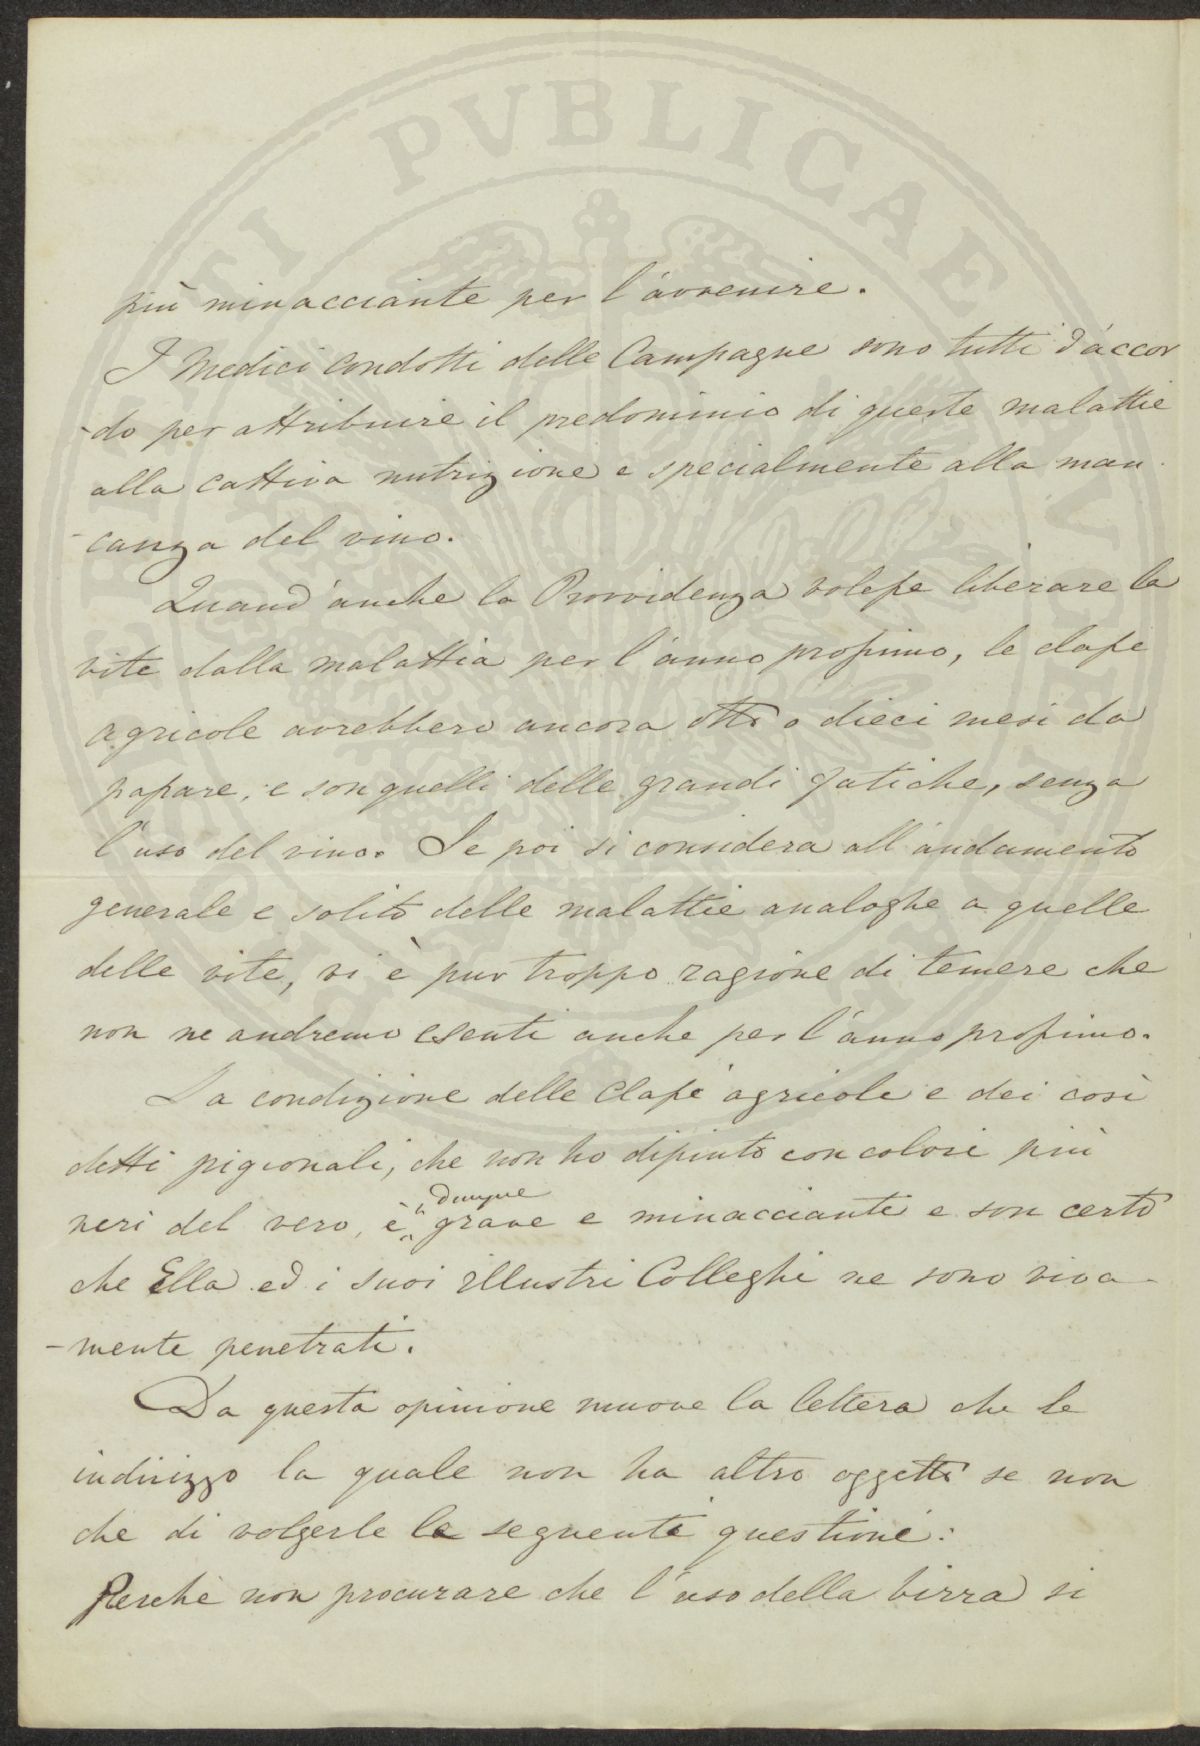 più minacciante per l'avvenire.
I Medici Condotti delle Campagne sono tutti d'accor
-do per attribuire il predominio di queste malattie
alla cattiva nutrizione e specialmente alla man
-canza del vino.
Quand'anche la Provvidenza volesse liberare la
vite dalla malattia per l'anno prossimo, le classi
agricole avrebbero ancora otto o dieci mesi da
passare, e son quelli delle grandi fatiche, senza
l'uso del vino. Se poi si considera all'andamento
generale e solito delle malattie analoghe a quelle
delle vite, vi è pur troppo ragione di temere che
non ne andremo esenti anche per l'anno prossimo.
La condizione delle Classi agricole e dei così
detti pigionali, che non ho dipinto con colori più
neri del vero, è dunque grave e minacciante e son certo
che Ella ed i suoi illustri Colleghi ne sono viva-
-mente penetrati.
Da questa opinione muove la lettera che le
indirizzo la quale non ha altro oggetto se non
che di volgerle le seguenti questioni:
Perchè non procurare che l'uso della birra si
PVBLICAE